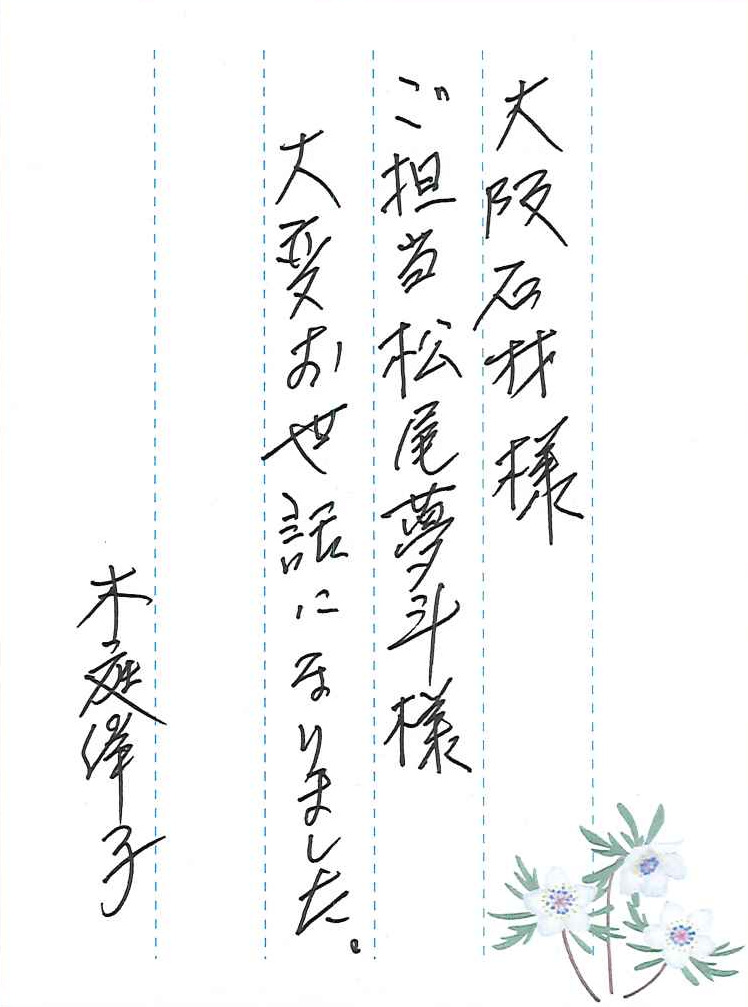 大阪石材様
ご担当松尾夢斗様
大変お世話になりました。
木庭律子